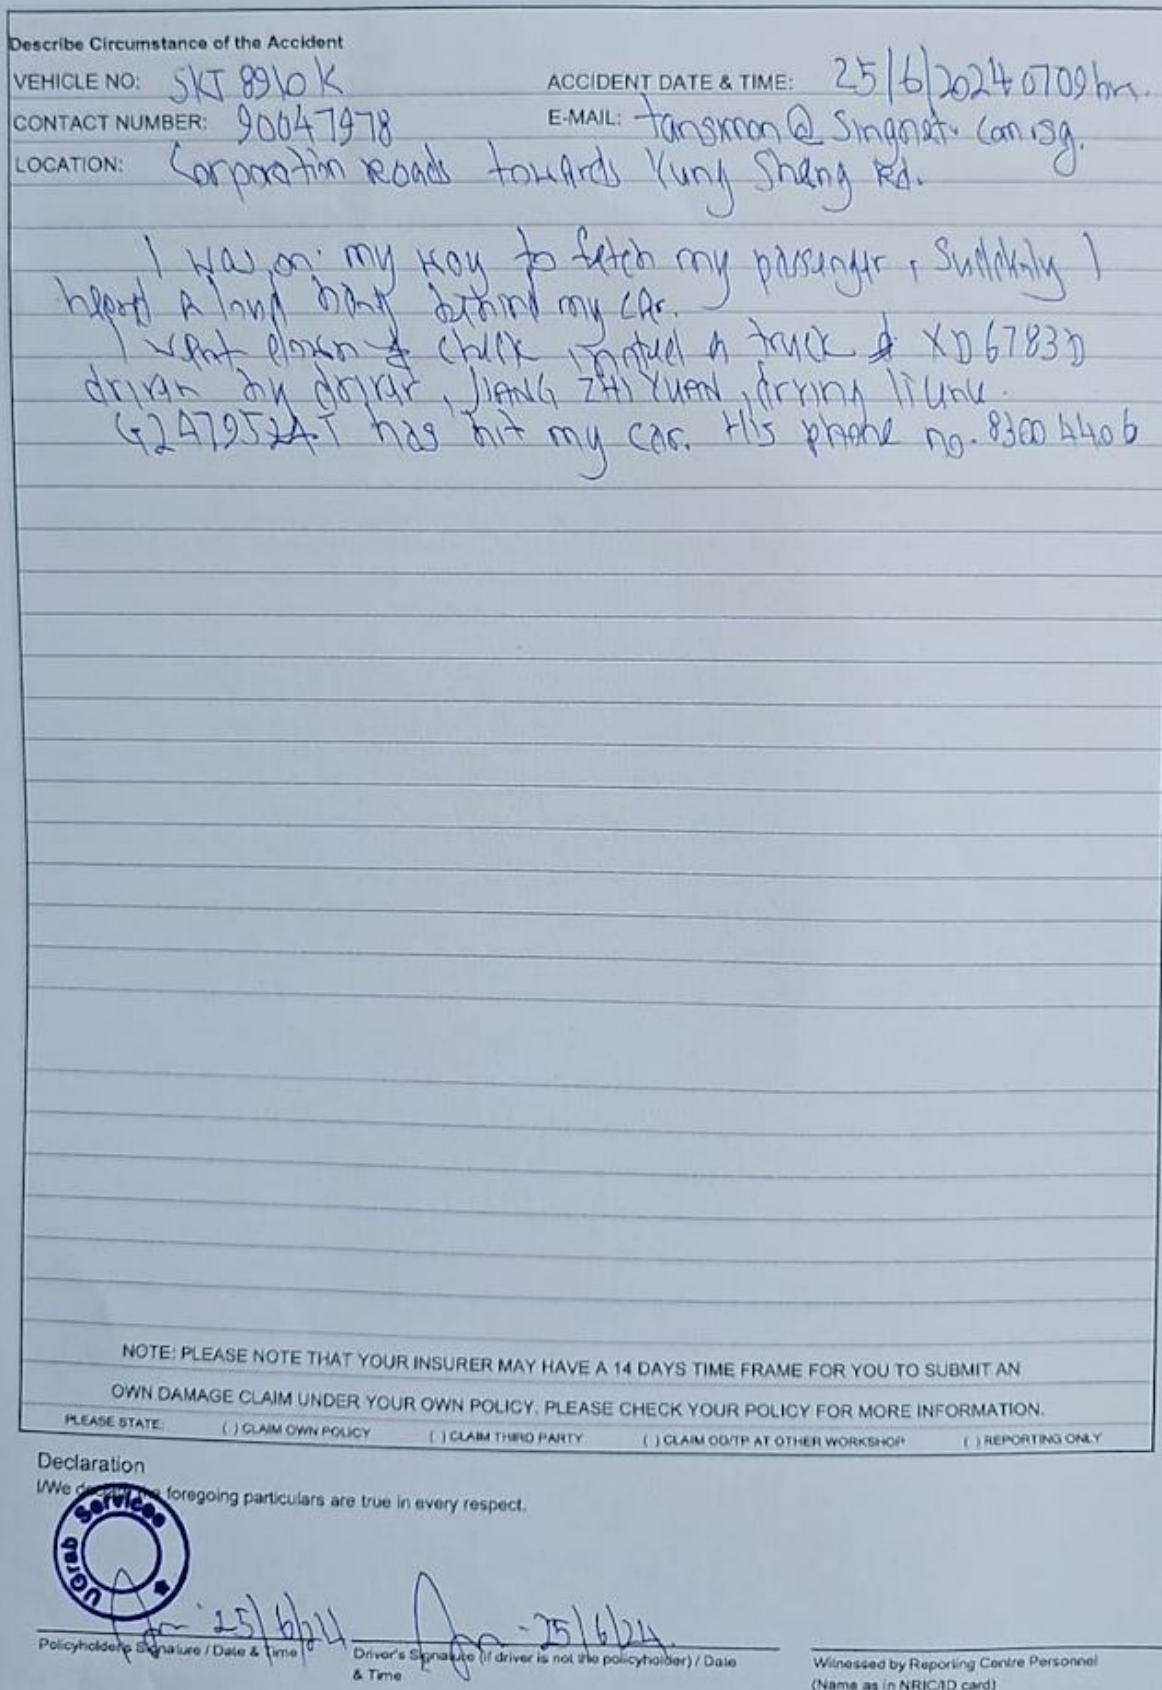 Describe Circumstance of the Accident
VEHICLE NO: SKT 8910K ACCIDENT DATE & TIME: 25/6/2024 0709hrs.
CONTACT NUMBER: 90047978 E-MAIL: tansimon@singnet.com.sg.
LOCATION: Corporation Roads towards Yung Sheng Rd.
I was on my way to fetch my passenger, Suddenly I
heard a loud bang behind my car.
I went down & check, noticed a truck XD6783D
driven by driver, JIANG ZHI YUAN, driving licence.
has hit my car. His phone no. 83004406
NOTE: PLEASE NOTE THAT YOUR INSURER MAY HAVE A 14 DAYS TIME FRAME FOR YOU TO SUBMIT AN
OWN DAMAGE CLAIM UNDER YOUR OWN POLICY. PLEASE CHECK YOUR POLICY FOR MORE INFORMATION.
PLEASE STATE: ( ) CLAIM OWN POLICY ( ) CLAIM THIRD PARTY ( ) CLAIM OD/TP AT OTHER WORKSHOP ( ) REPORTING ONLY
Declaration
I/We declare the foregoing particulars are true in every respect.
UGrab Services
25/6/24 - 25/6/24
Policyholder's Signature / Date & Time Driver's Signature (if driver is not the policyholder) / Date
& Time
Witnessed by Reporting Centre Personnel
(Name as in NRIC/ID card)